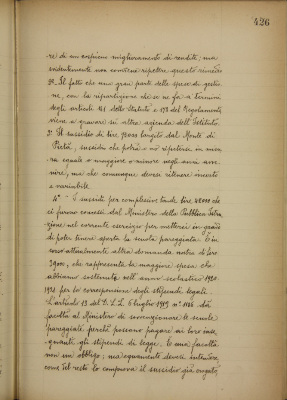 426
ne di un cospicuo miglioramento di rendite; ma
evidentemente non conviene ripetere questo rimedio
2° Il fatto che una gran parte delle spese di gestio
ne, con la ripartizione che se ne fa a termini
degli articoli 121 dello Statuto e 178 del Regolamento
viene a gravare su altre aziende dell'Istituto.
3° Il sussidio di lire 7000 largito dal Monte di
Pietà, sussidio che potrà o no ripetersi in misu
ra eguale o maggiore o minore negli anni avve
nire, ma che comunque devesi ritenere incerto
e variabile
4° I sussidi per complessive lire 48000 che
ci furono concessi dal Ministero della Pubblica Istru
zione nel corrente esercizio per metterci in grado
di poter tenere aperta la scuola pareggiata. È in
corso attualmente altra domanda nostra di lire
2900, che rappresenta la maggiore spesa che
abbiamo sostenuta nell'anno scolastico 1920-
1921 per la corresponsione degli stipendi legali.
L'articolo 19 del D. L. L. 6 luglio 1919 n° 1186 dà
facoltà al Ministero di sovvenzionare le scuole
pareggiate perchè possano pagare ai loro inse
gnanti gli stipendi di legge. È una facoltà
non un obbligo; ma equamente devesi intendere,
come del resto lo comprova il sussidio già erogato,